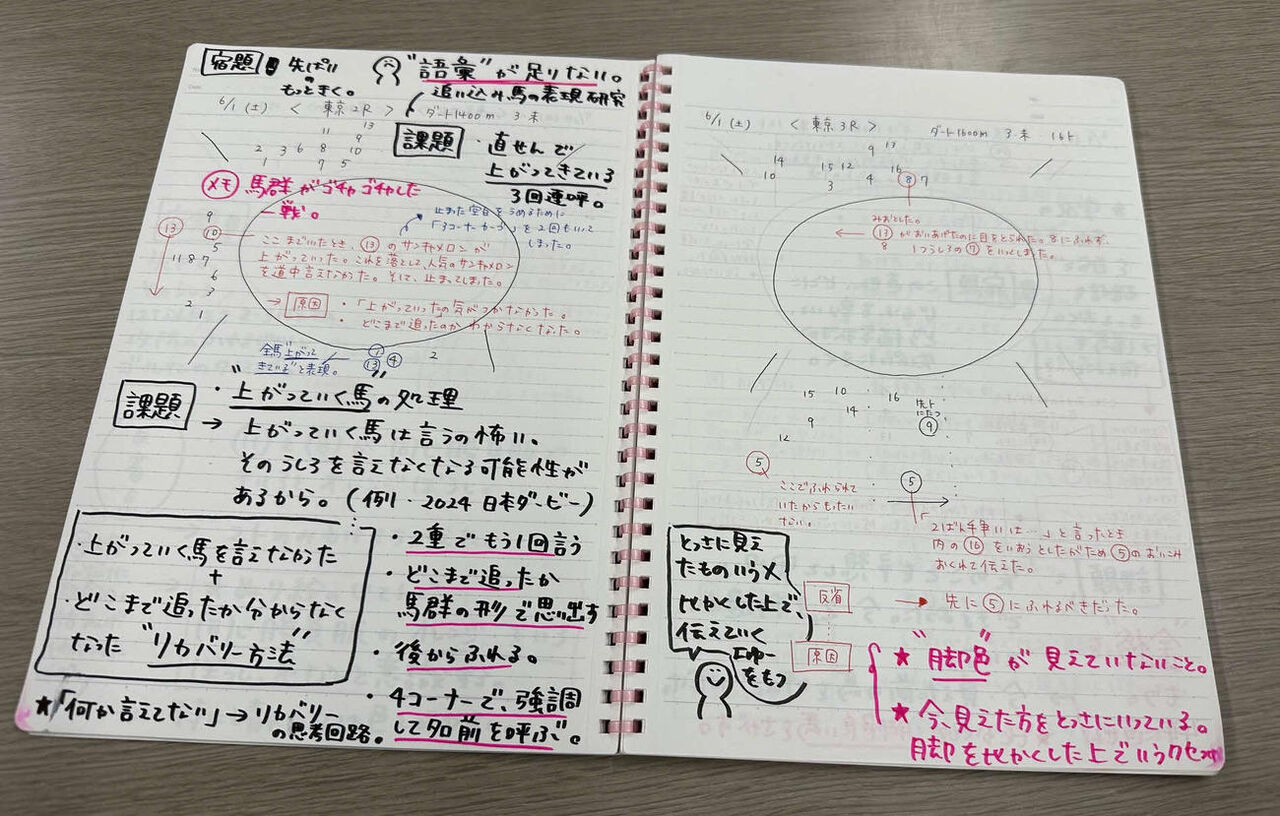 宿題
先ぱい
の
もっときく。
"語彙"が足りない。
追い込み馬の表現研究
6/1(土) < 東京2R > ダート1400m 3・未
13
11 9
2 3 6 8 10
1 7 5
課題
・直せんで
上がってきている
3回連呼。
メモ 馬群がゴチャゴチャした
一戦。
止まった空白をうめるために
「3コーナーカーブ」を2回もいって
しまった。
9
13 10
5
11 8 7
6
3
2
1
ここまでいたとき、⑬のサンキャメロンが
上がっていった。これを落として、人気のサンキャメロン
を道中言えなかった。そして、止まってしまった。
→ 原因
・「上がっていった」の気がつかなかった。
・どこまで追ったのかわからなくなった。
全馬"上がって
きている"と表現。
⑬ ④ 2
課題
・"上がっていく馬"の処理
→ 上がっていく馬は言うの怖い。
そのうしろを言えなくなる可能性が
あるから。(例)・2024 日本ダービー)
・上がっていく馬を言えなかった
+
・どこまで追ったか分からなく
なった "リカバリー方法"
・2重でもう1回言う
・どこまで追ったか
馬群の形で思い出す
・後からふれる。
・4コーナーで、強調
して名前を呼ぶ。
★「何か言えてない」→リカバリー
の思考回路。
6/1(土) < 東京3R > ダート1600m 3・未・16ト
9 13
14 15 12 16
10 3 4 ⑧ 7
みおとした。
⑬がおいあげたのに目をとられた。8にふれず、
8
1つうしろの⑦をいってしまった。
15 10 16
14
9 13
12
先ト
にたつ
⑨
⑤
ここでふれられて
いたからもったい
ない。
⑤
「2ばん手争いは…」と言ったとき
内の⑯をいおうとしたがため⑤のおいこみ
おくれて伝えた。
とっさに見え
たものいうメ
比かくした上で、
伝えていく
をもつ
反省
→ 先に⑤にふれるべきだった。
原因
★ "脚色"が見えていないこと。
★ 今、見えた方をとっさにいっている。
脚を比かくした上でいうクセ